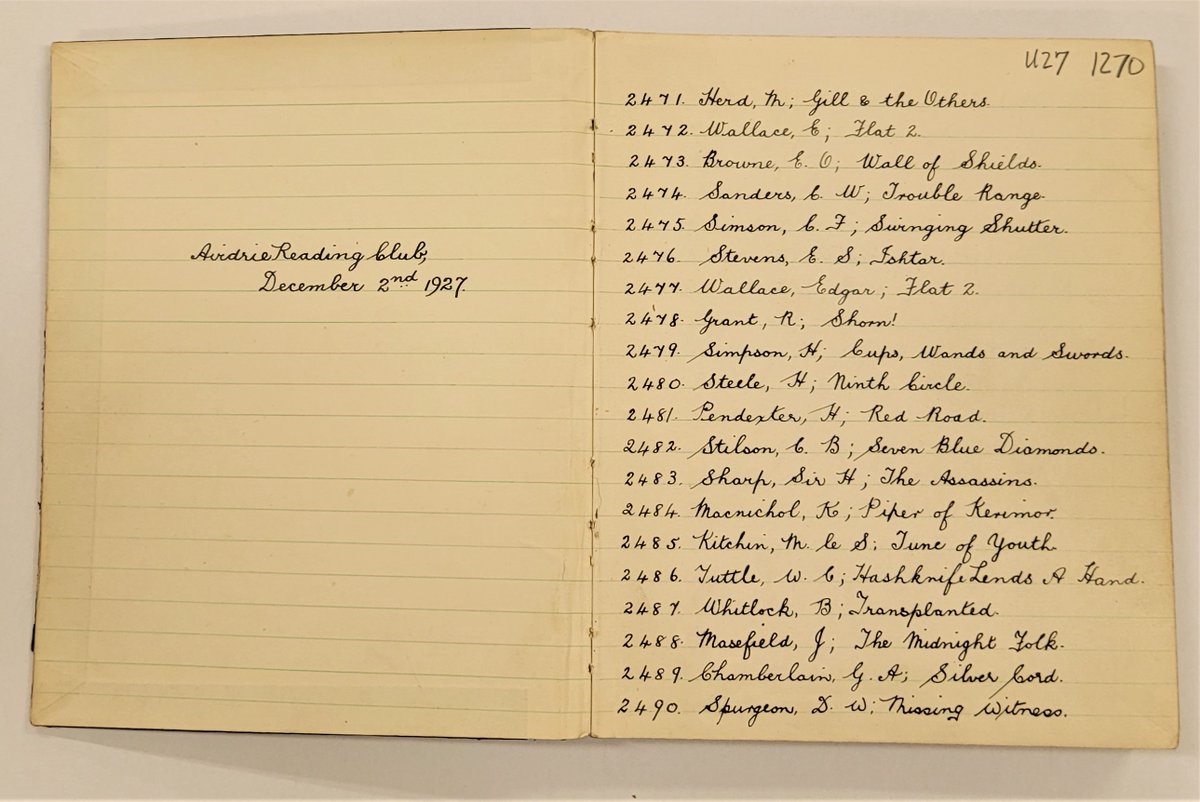 Airdrie Reading Club,
December 2nd 1927.
U27 1270
2471. Herd, M; Gill & the Others.
2472. Wallace, E; Flat 2.
2473. Browne, E. O; Wall of Shields.
2474. Sanders, C. W; Trouble Range.
2475. Simson, C. F; Swinging Shutter.
2476. Stevens, E. S; Ishtar.
2477. Wallace, Edgar; Flat 2.
2478. Grant, R; Shorn!
2479. Simpson, H; Cups, Wands and Swords.
2480. Steele, H; Ninth Circle.
2481. Pendexter, H; Red Road.
2482. Stilson, C. B; Seven Blue Diamonds.
2483. Sharp, Sir H; The Assassins.
2484. Macnichol, K; Piper of Kerimor.
2485. Kitchin, M. le S; Tune of Youth.
2486. Tuttle, W. C; Hashknife Lends A Hand.
2487. Whitlock, B; Transplanted.
2488. Masefield, J; The Midnight Folk.
2489. Chamberlain, G. A; Silver Cord.
2490. Spurgeon, D. W; Missing Witness.